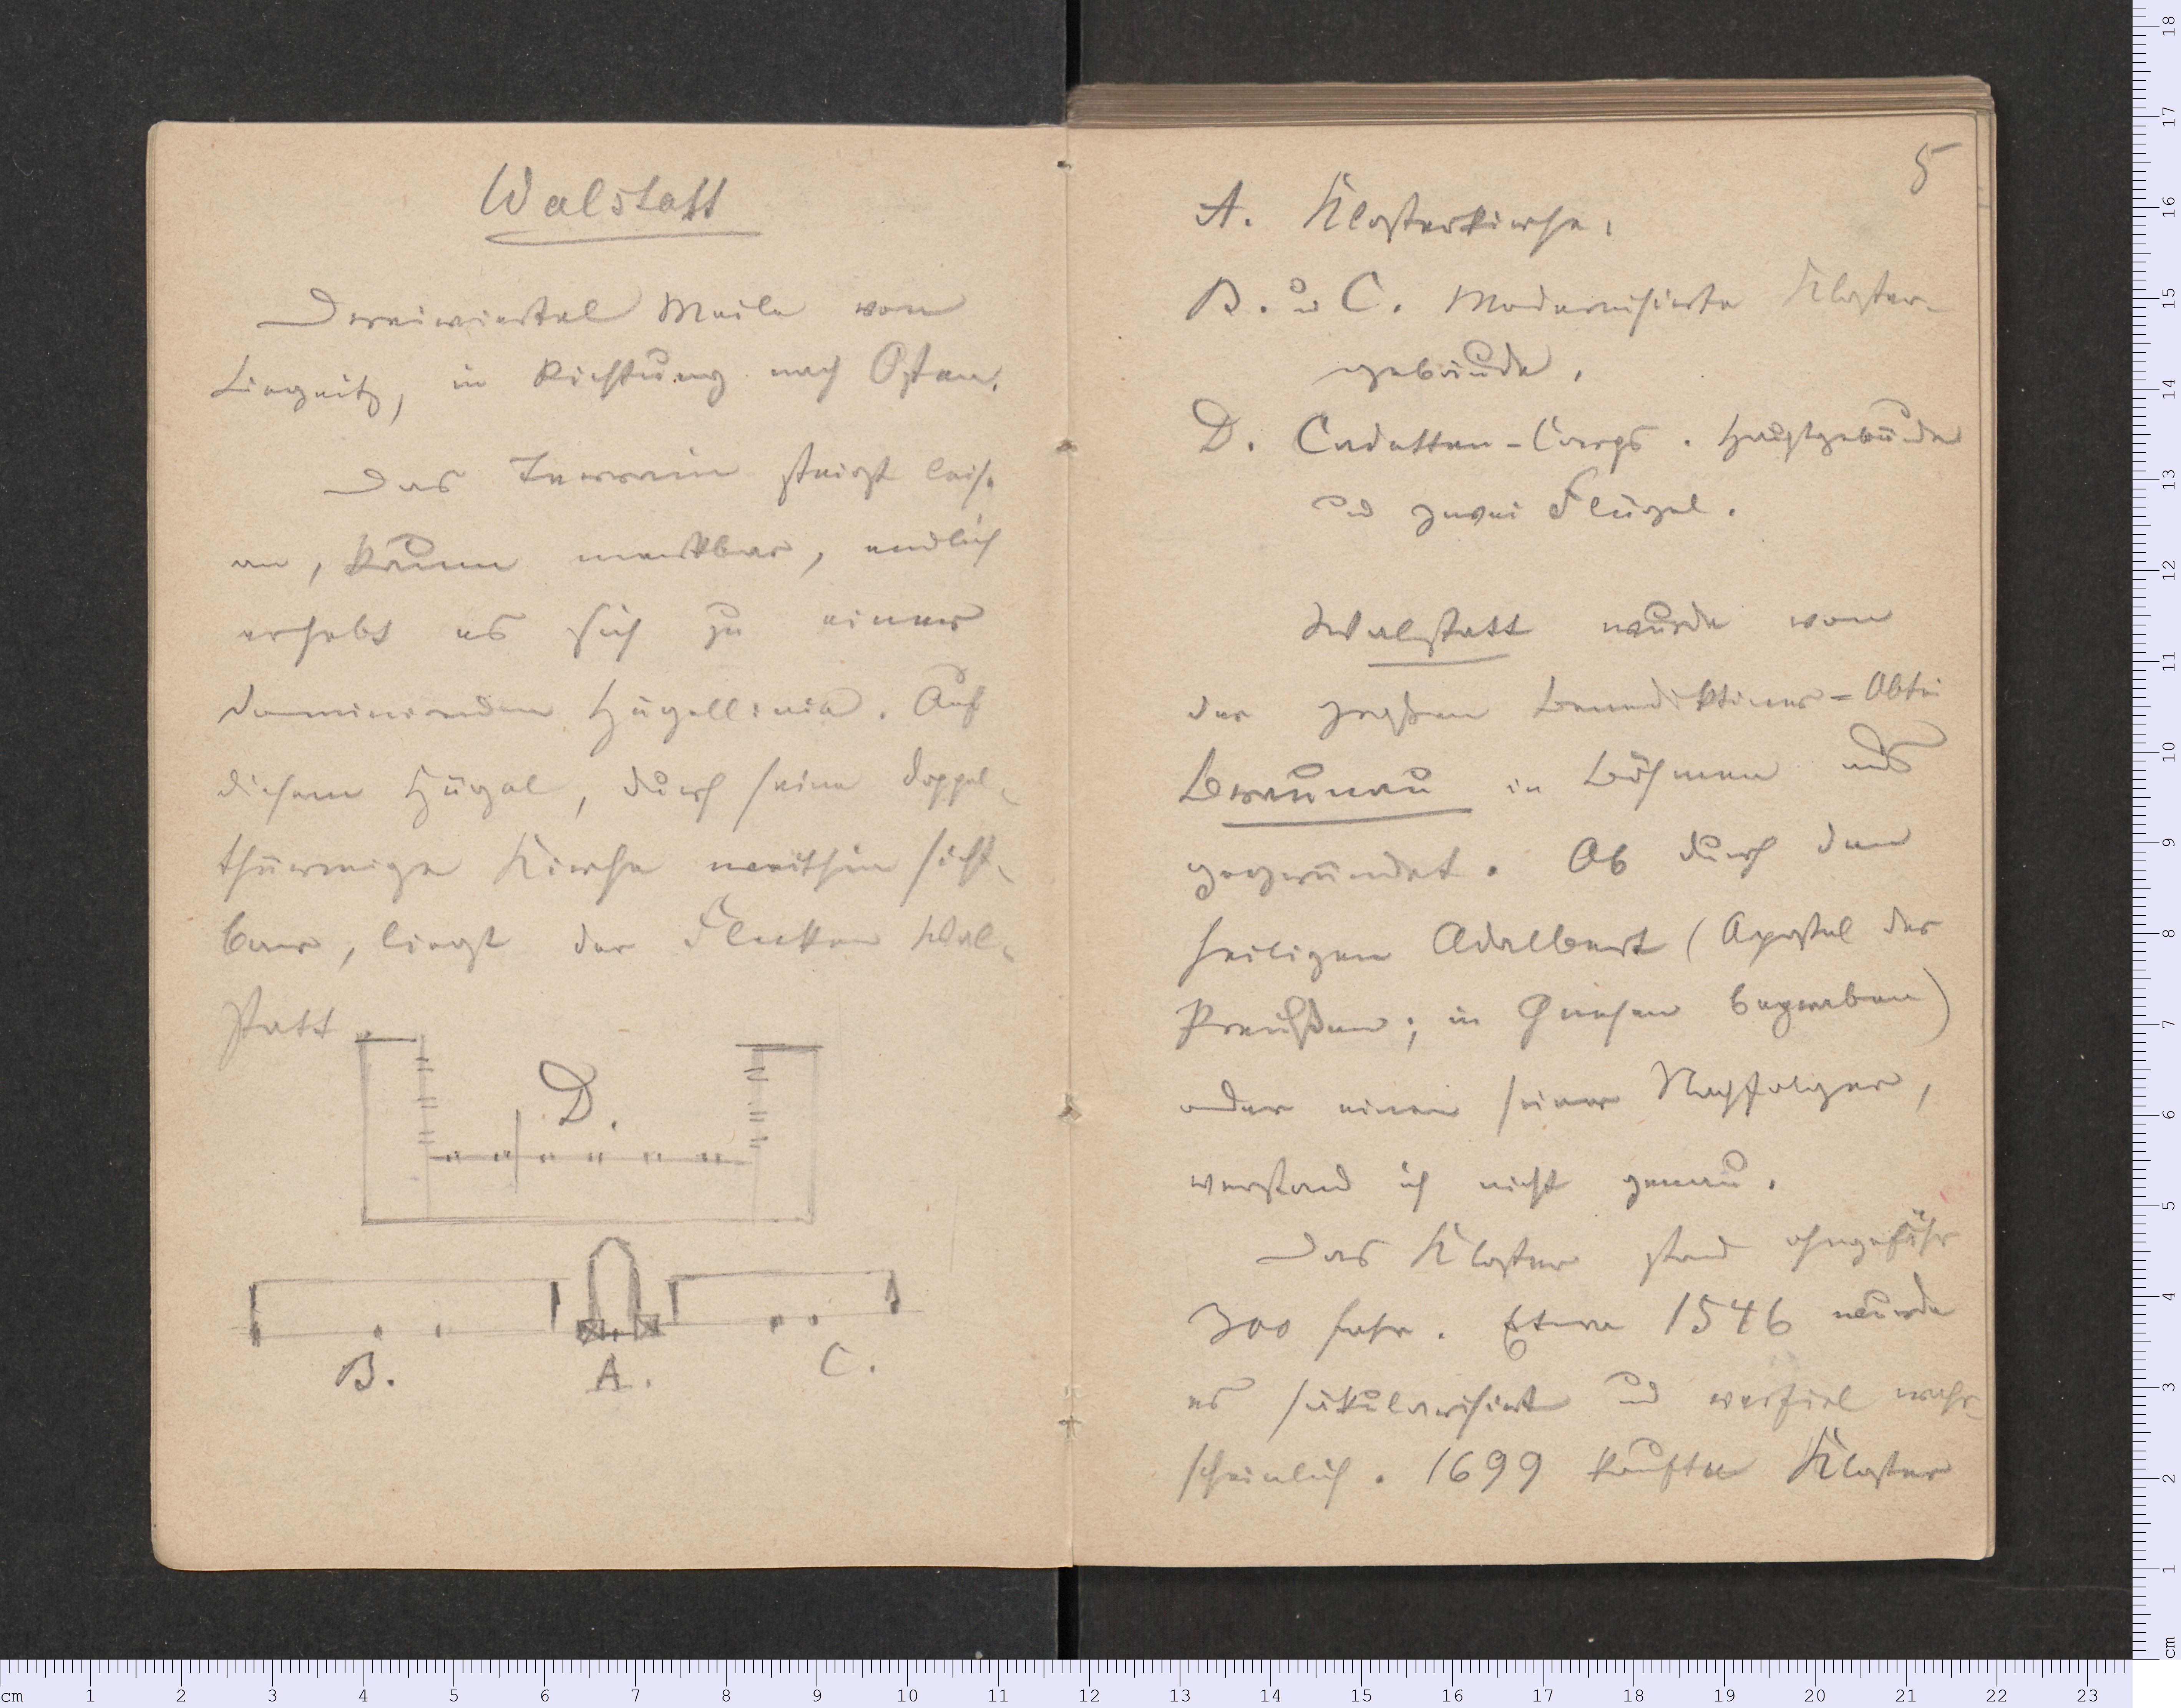 Walstatt
Dreiviertel Meile von
Liegnitz, in Richtung nach Osten.
Das Terrain steigt leis.
an, kaum merkbar, endlich
erhebt es sich zu einer
dominirenden Hügellinie. Auf
diesem Hügel, durch seine doppel-
thürmige Kirche weithin sicht-
bar, liegt der Flecken Wal-
statt
D.
B. A. C.
5
A. Klosterkirche.
B. u C. Modernisirte Kloster-
gebäude.
D. Cadetten-Corps. Hauptgebäude
und zwei Flügel.
Walstatt wurde von
der großen Benediktiner-Abtei
Braunau in Böhmen aus
gegründet. Ob durch den
heiligen Adalbert (Apostel der
Preußen; in Gnesen begraben)
oder einen seiner Nachfolger,
verstand ich nicht genau.
Das Kloster stand ohngefähr
300 Jahr. Etwa 1546 wurde
es säkularisirt und verfiel wahr-
scheinlich. 1699 kaufte Kloster